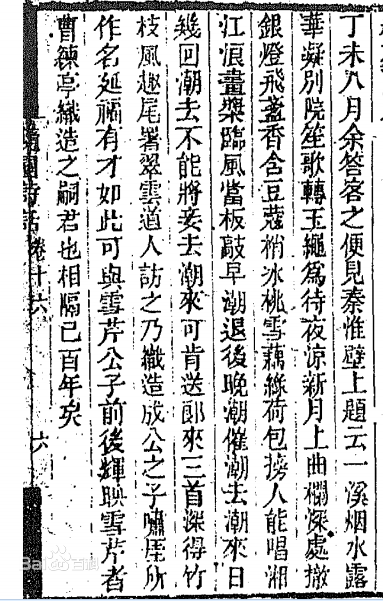 丁未八月余答客之便見秦淮壁上題云一溪烟水露
華凝別院笙歌轉玉繩為待夜涼新月上曲欄深處撤
銀燈飛盞香含豆蔻梢冰桃雪藕綠荷包榜人能唱湘
江浪畫槳臨風當板敲早潮退後晚潮催潮去潮來日
幾回潮去不能將妾去潮來可肯送郎來三首深得竹
枝風趣尾署翠雲道人訪之乃織造成公之子嘯厓所
作名延福有才如此可與雪芹公子前後輝映雪芹者
曹練亭織造之嗣君也相隔已百年矣
隨園詩話 卷十六 六
Bai百科